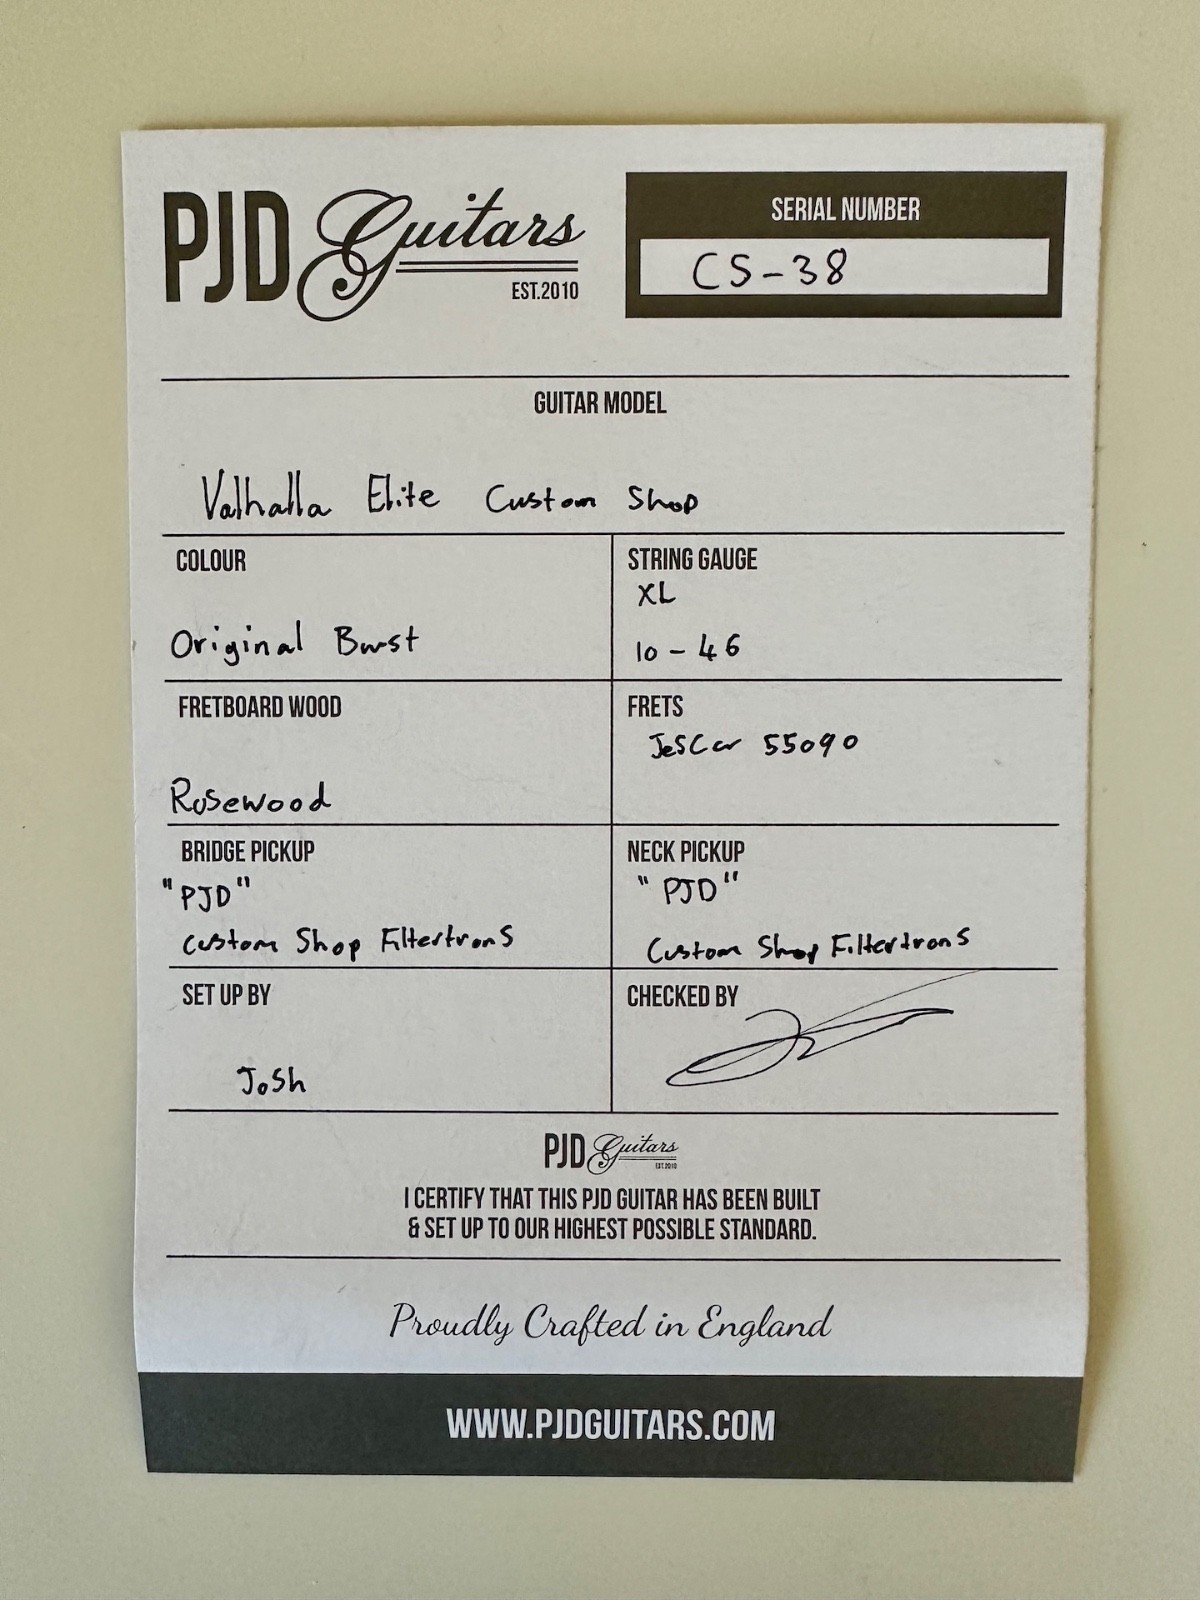 PJD Guitars
EST.2010
SERIAL NUMBER
CS-38
GUITAR MODEL
Valhalla Elite Custom Shop
COLOUR
Original Burst
STRING GAUGE
XL
10-46
FRETBOARD WOOD
Rosewood
FRETS
JesCar 55090
BRIDGE PICKUP
"PJD"
Custom Shop Filtertrons
NECK PICKUP
"PJD"
Custom Shop Filtertrons
SET UP BY
Josh
CHECKED BY
PJD Guitars
EST.2010
I CERTIFY THAT THIS PJD GUITAR HAS BEEN BUILT
& SET UP TO OUR HIGHEST POSSIBLE STANDARD.
Proudly Crafted in England
WWW.PJDGUITARS.COM